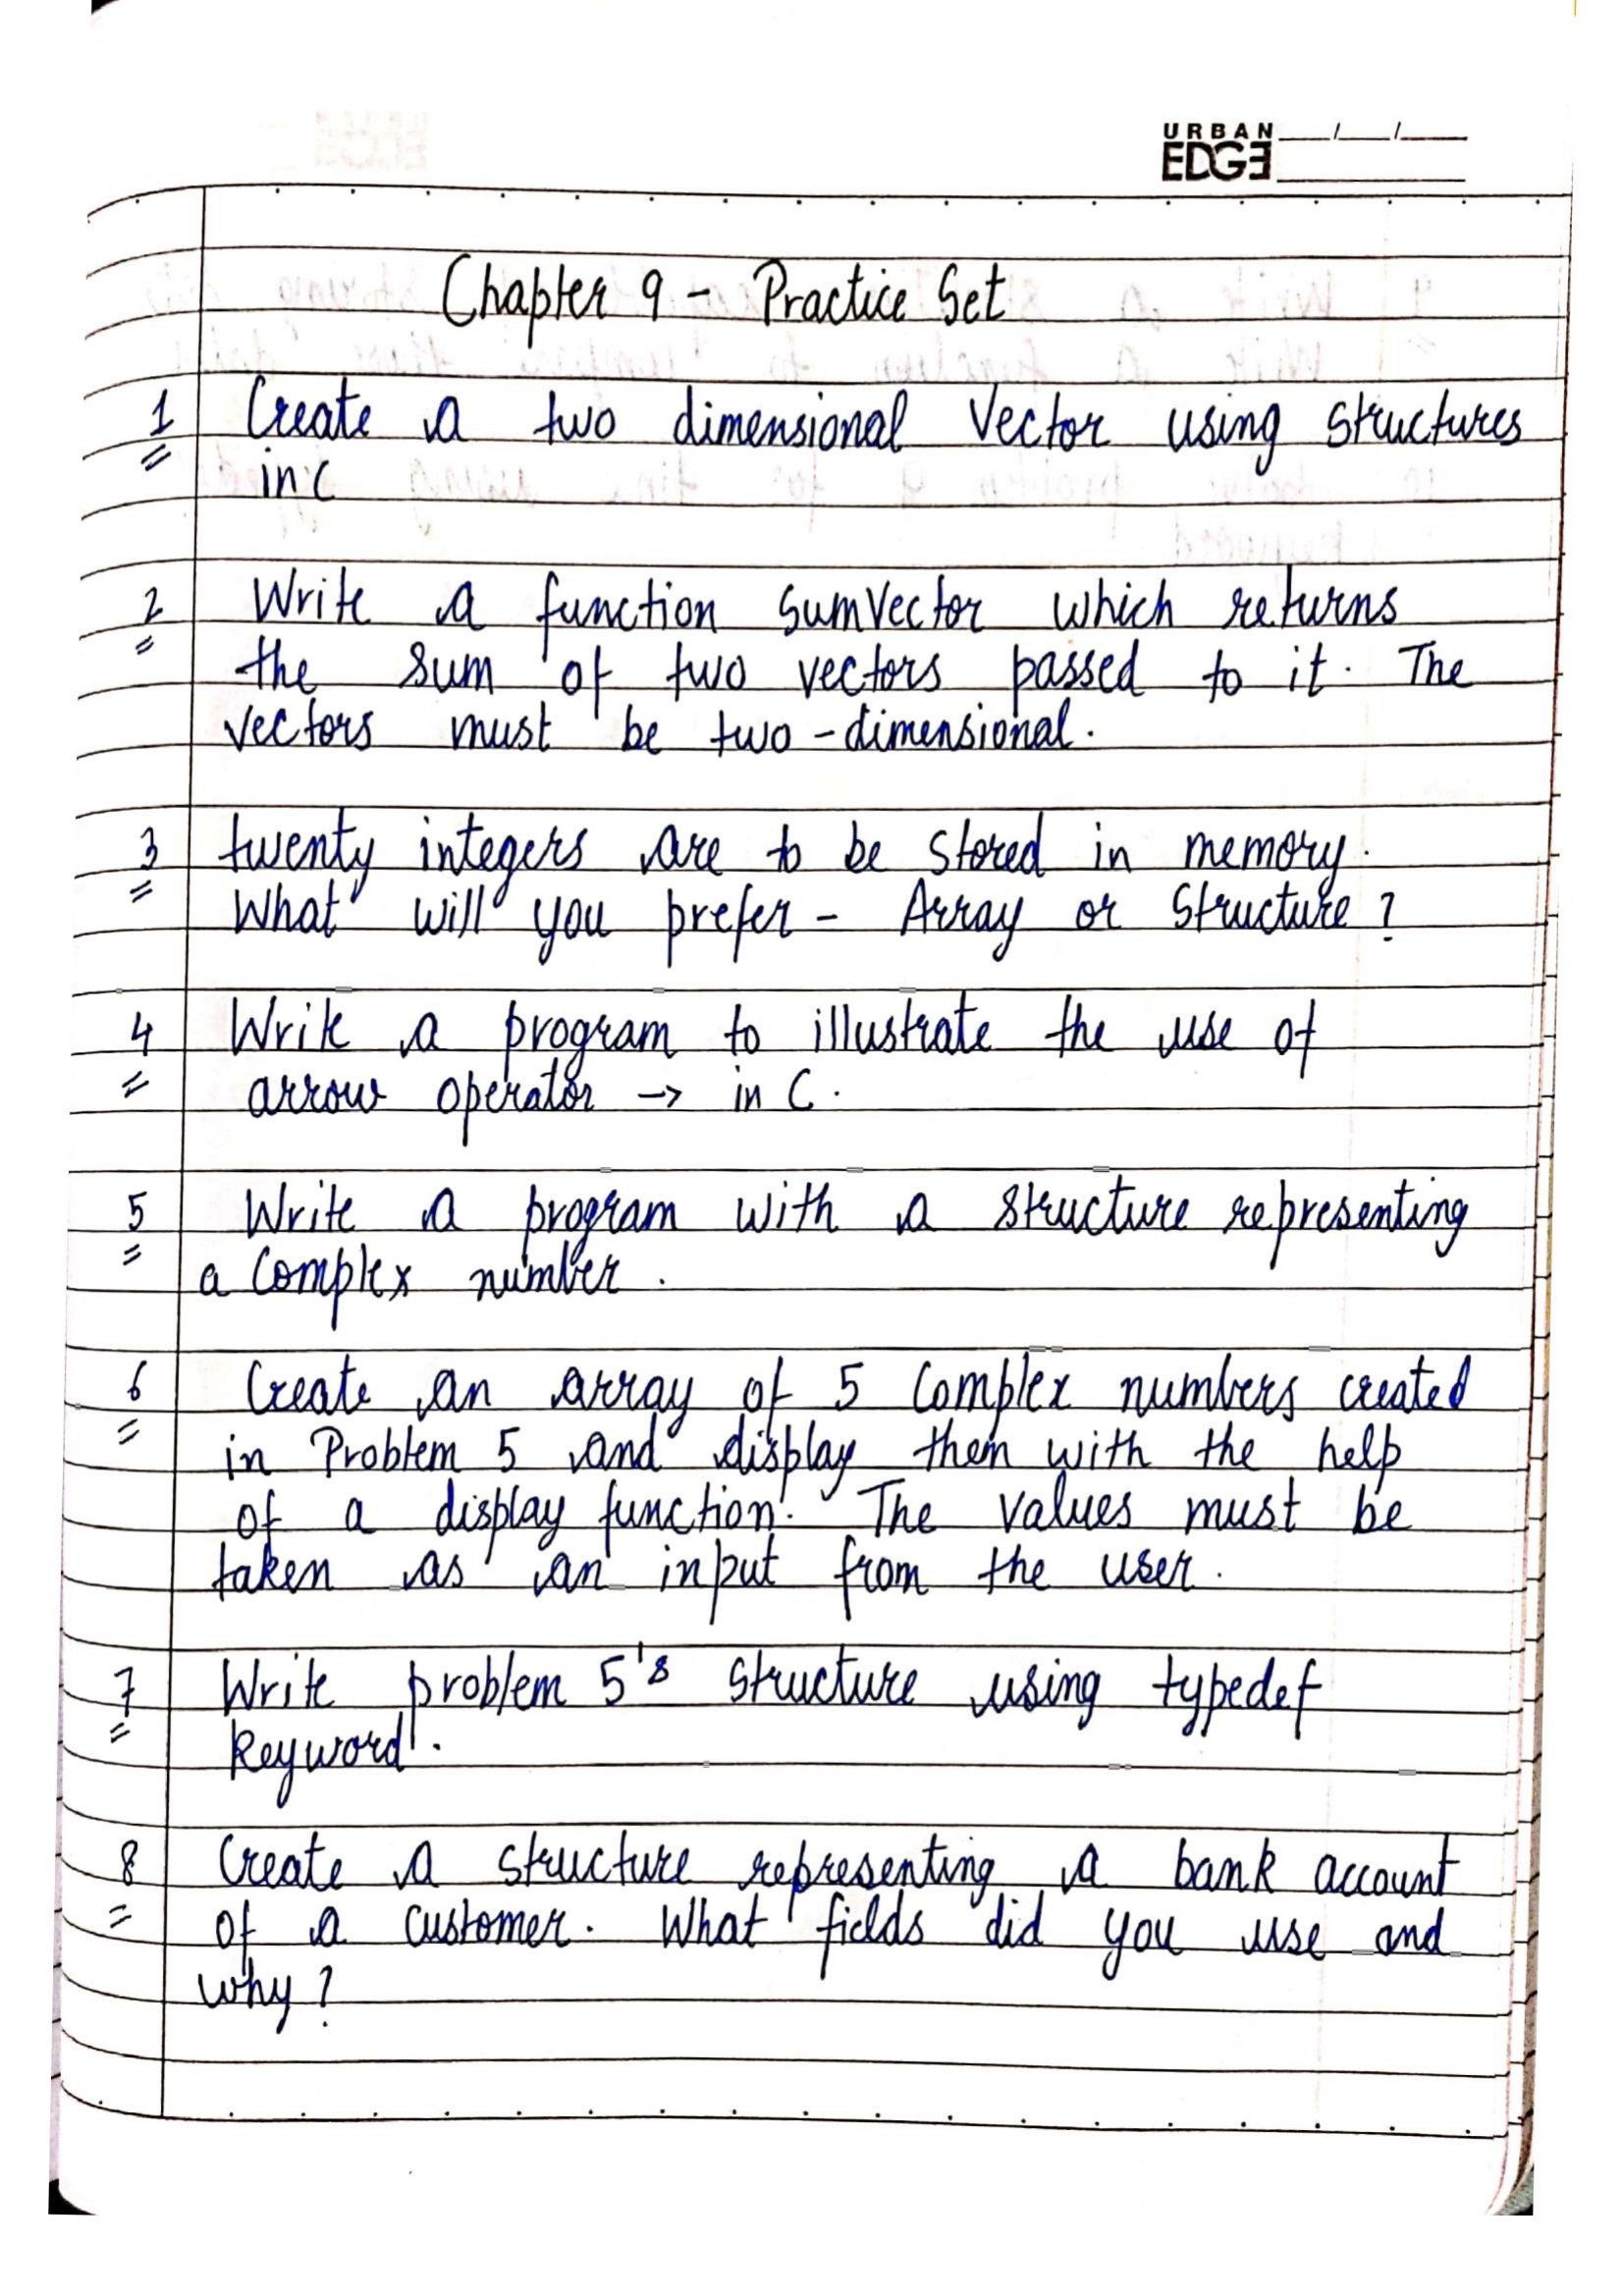 URBAN
EDGE
Chapter 9 - Practice Set
1 Create a two dimensional Vector using structures
in C
2 Write a function sumVector which returns
the sum of two vectors passed to it. The
vectors must be two-dimensional.
3 twenty integers are to be stored in memory.
What will you prefer - Array or Structure?
4 Write a program to illustrate the use of
arrow operator -> in C.
5 Write a program with a structure representing
a Complex number.
6 Create an array of 5 Complex numbers created
in Problem 5 and display them with the help
of a display function. The values must be
taken as an input from the user.
7 Write problem 5's structure using typedef
keyword.
8 Create a structure representing a bank account
of a customer. What fields did you use and
why?